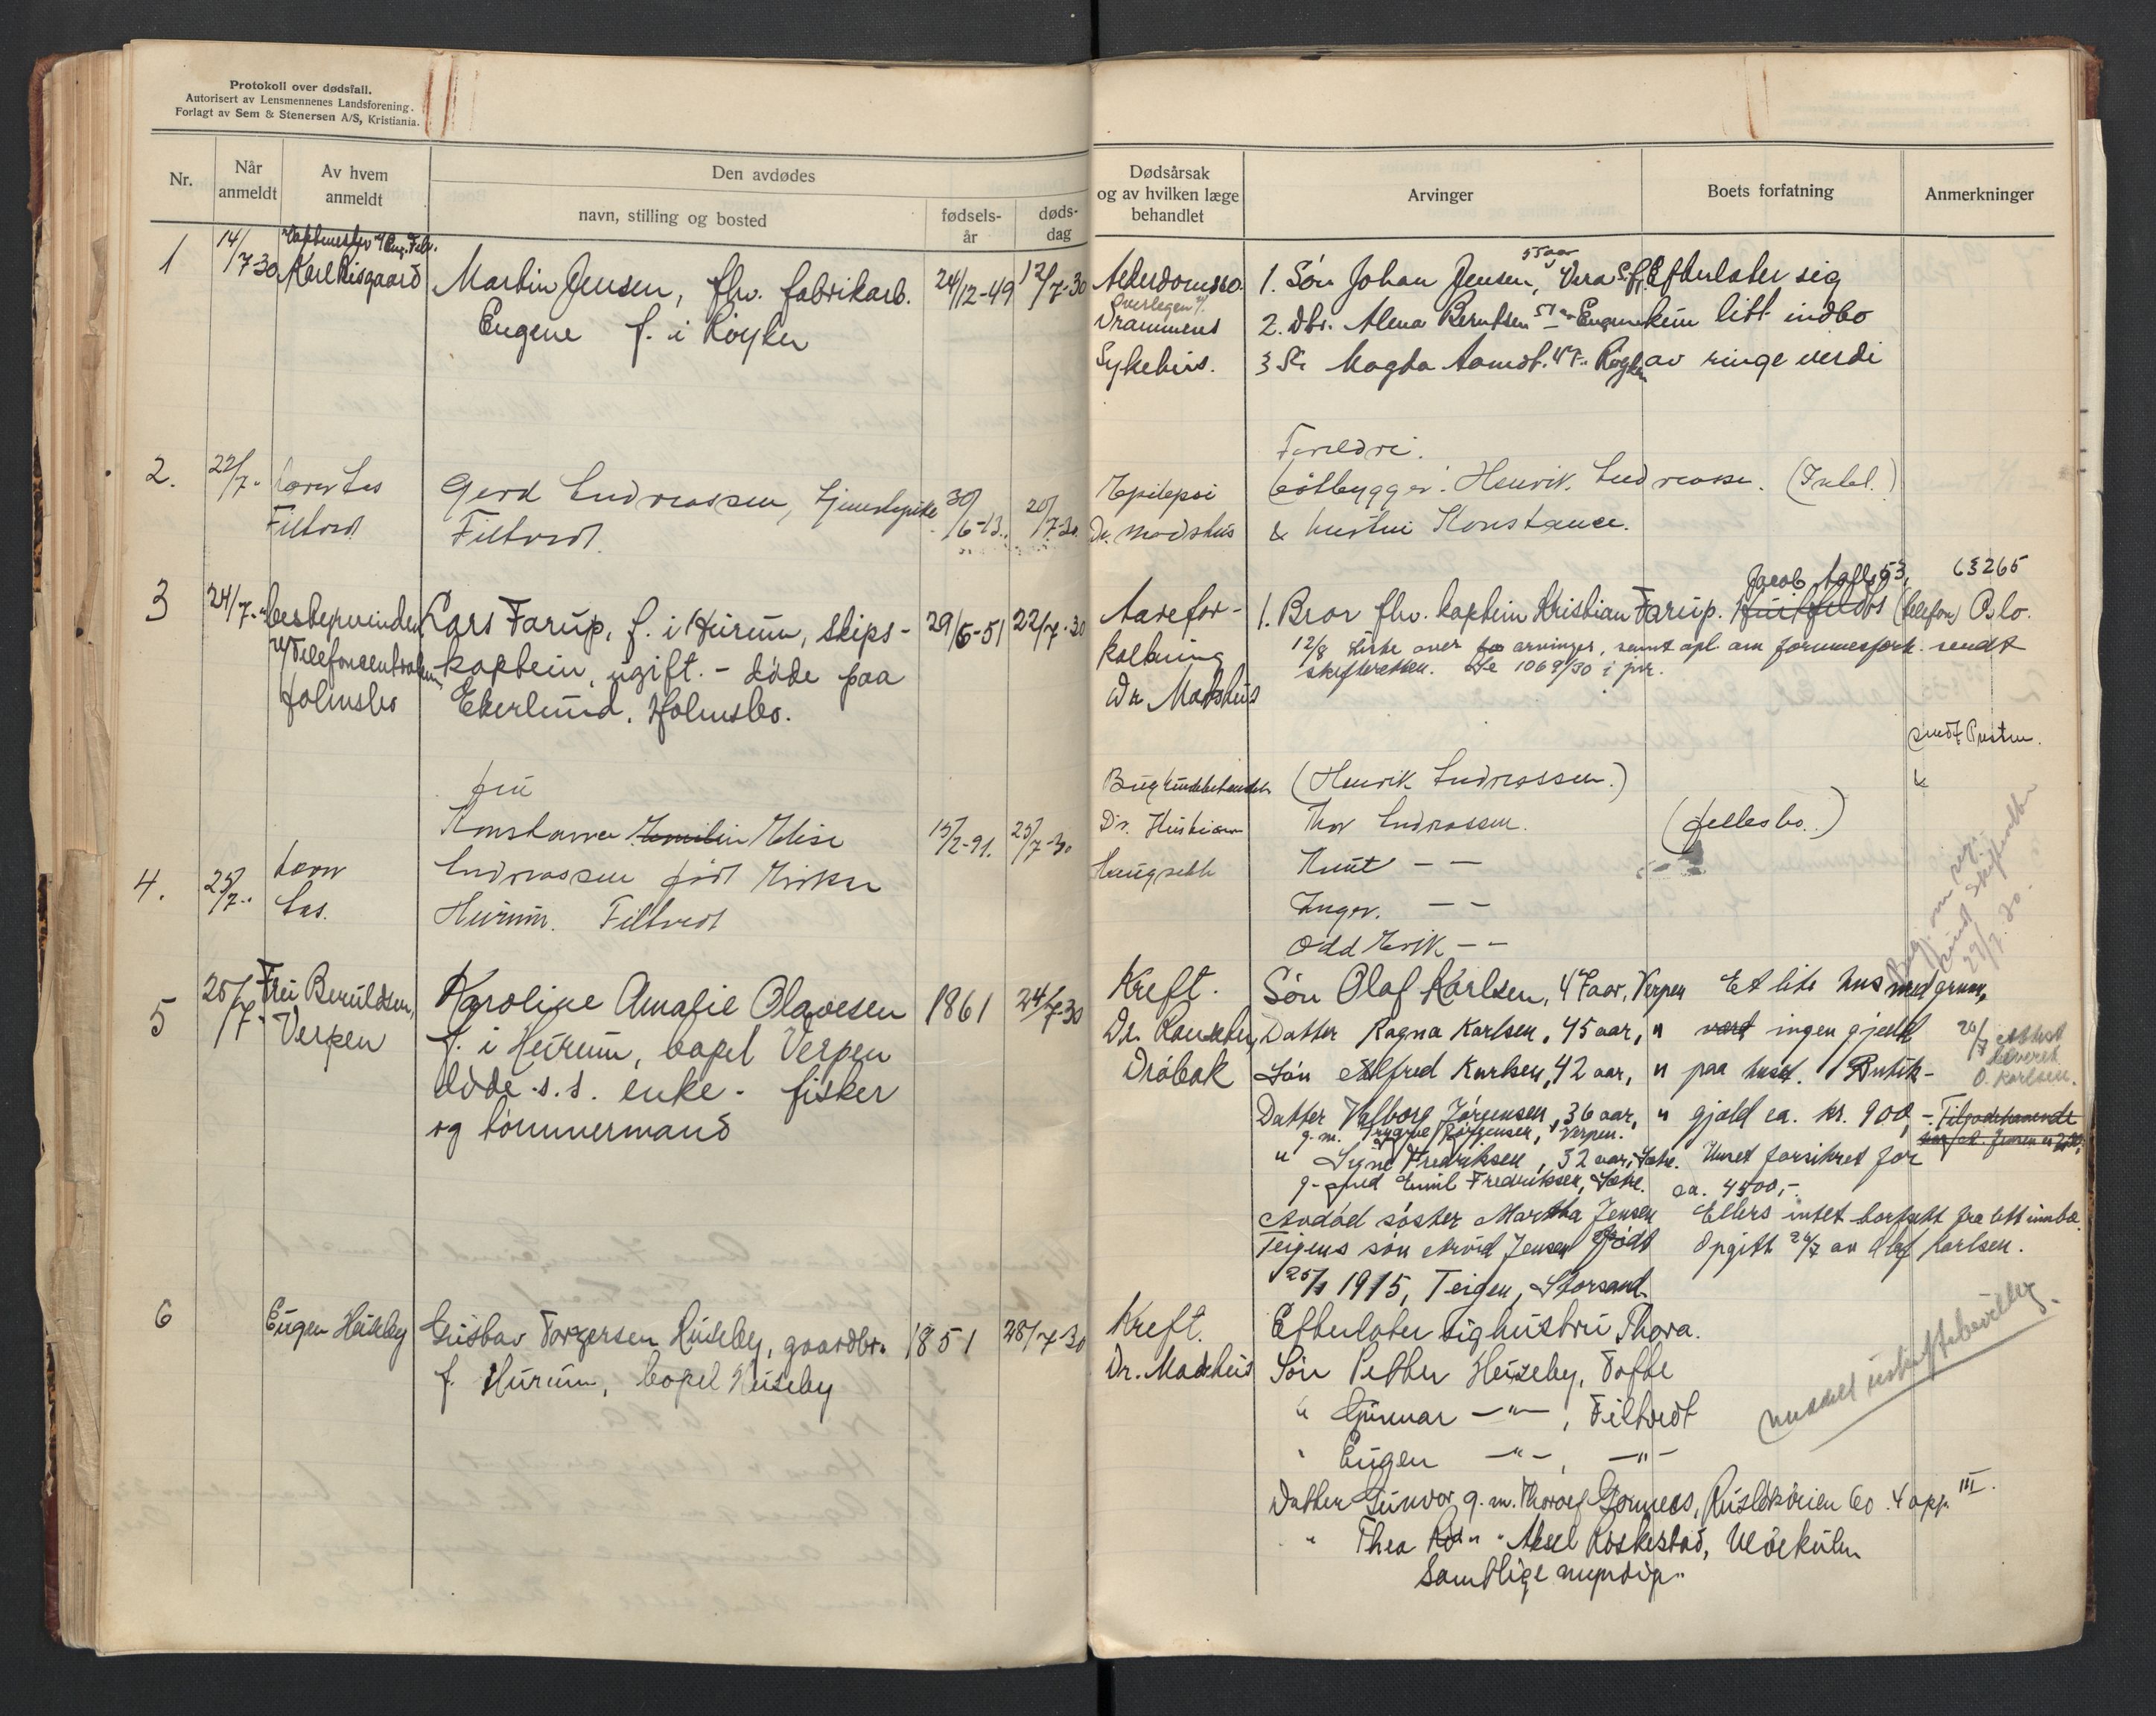 Protokoll over dødsfall.
Autorisert av Lensmennenes Landsforening.
Forlagt av Sem & Stenersen A/S, Kristiania.
Nr.
Når anmeldt
Av hvem anmeldt
Den avdødes
navn, stilling og bosted
fødsels-år
døds-dag
Dødsårsak og av hvilken læge behandlet
Arvinger
Boets forfatning
Anmerkninger
1
14/7-30
Karl Risgaard
Martin Jensen, fhv. fabrikarb.
Engene f. i Røyken
24/12-49
12/7-30
Alderdomsso.
Overlegen v/
Drammens
Sykehus.
55 aar
1. Søn Johan Jensen,
2. Dtr. Alena Berntsen 51 aar
3 Magda Aamodt. 47.. Røyken
Efterlater sig
kun litt indbo
av ringe verdi
2.
22/7-
Filtvedt
Gerd Andreassen, tjenestepike
Filtvedt.
30/6-13.
20/7-30.
Epilepsi
Dr. Madshus
Foreldre.
Båtbygger Henrik Andreassen.
& hustru Konstance.
3
24/7-"
bestyrerinden
v/Telefoncentralen
Holmsbo
Lars Farup, f. i Hurum, skips-
kaptein, ugift. - døde paa
Ekerlund, Holmsbo.
29/5-51
22/7-30
Aarefor-
kalkning
Dr. Madshus
Jacob Aalls g. 53,
63265
1. Bror fhv. kaptein Kristian Farup. Huitfeldts (telefon) Oslo.
12/8 Liste over arvinger, samt opl. om formuesforh. sendt
skifteretten. 1069/30 i jnr.
sendt Presten.
4.
25/7..
Las.
fru
Konstance Emilie Elise
Andreassen født Eriksen
Hurum. Filtvedt
15/2-91.
23/7-30
Bughindebetendelse
Dr. Kristian
Haugseth
(Henrik Andreassen.)
Thor Andreassen.
Knut - -
Inger. - -
Odd Erik - -
(fellesbo.)
27/7. 30.
5
25/7-
Fru Beruldsen,
Verpen
Karoline Amalie Olavesen
f. i Hurum, bopel Verpen
døde s. s. enke - fisker
og tømmermand
1861
24/7-30
Kreft.
Drøbak
Søn Olaf Karlsen, 47 aar, Verpen
Datter Ragna Karlsen, 45 aar, "
Søn Alfred Karlsen, 42 aar, "
Datter Valborg Jørgensen, 36 aar, "
g. m. Trygve Jørgensen, Verpen.
" Signe Fredriksen, 32 aar, Sætre.
g. med Emil Fredriksen, Sætre.
Avdød søster Martha Jensen
Teigens søn Arvid Jensen født
25/1 1915, Teigen, Storsand.
Et lite hus med grunn,
ingen gjeld
paa huset. Butik-
gjæld ca. kr. 900,-
Huset forsikret for
ca. 4500,-.
Ellers intet bortsett fra litt innbo.
Opgitt 26/7 av Olaf Karlsen.
26/7 attest
leveret
O. Karlsen.
Tilgodehavende
6
Eugen Huseby
Gustav Torgersen Huseby, gaardbr.
f. Hurum, bopel Huseby
1851
28/7-30
Kreft.
Dr. Madshus
Efterlater sig hustru Thora.
Søn Petter Huseby, Tofte
" Gunnar -"-, Filtvedt
" Eugen -"-, -"-
Datter Gunvor g. m. Thorolf Gornæs, Ruseløkveien 60. 4 opg. III.
" Thea " " Aksel Røskestad, Ulvekulen
Samtlige myndige.
meddelt uskiftebevilling.